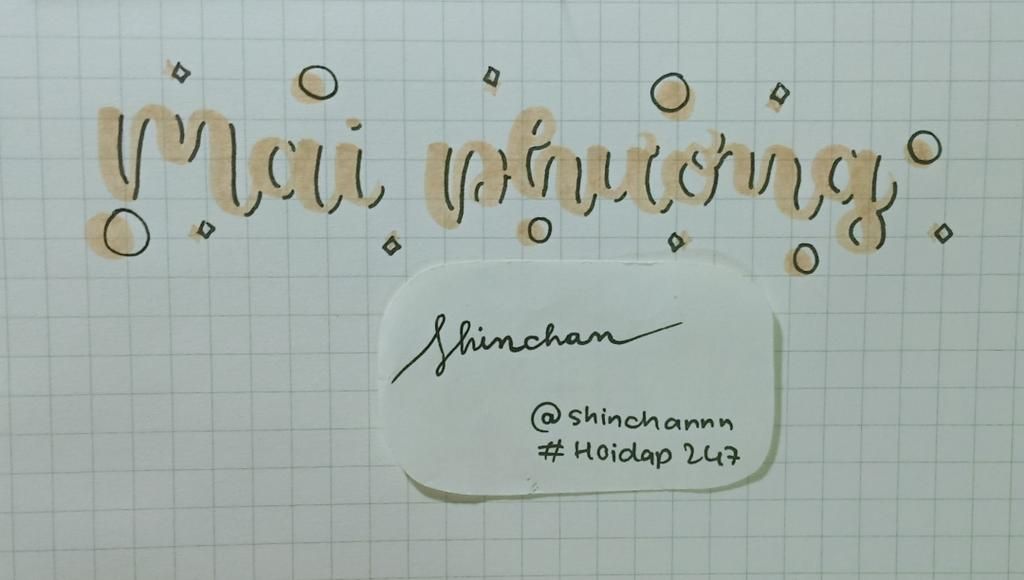 Mai phương
Shinchan
@shinchannn
# Hoidap 247